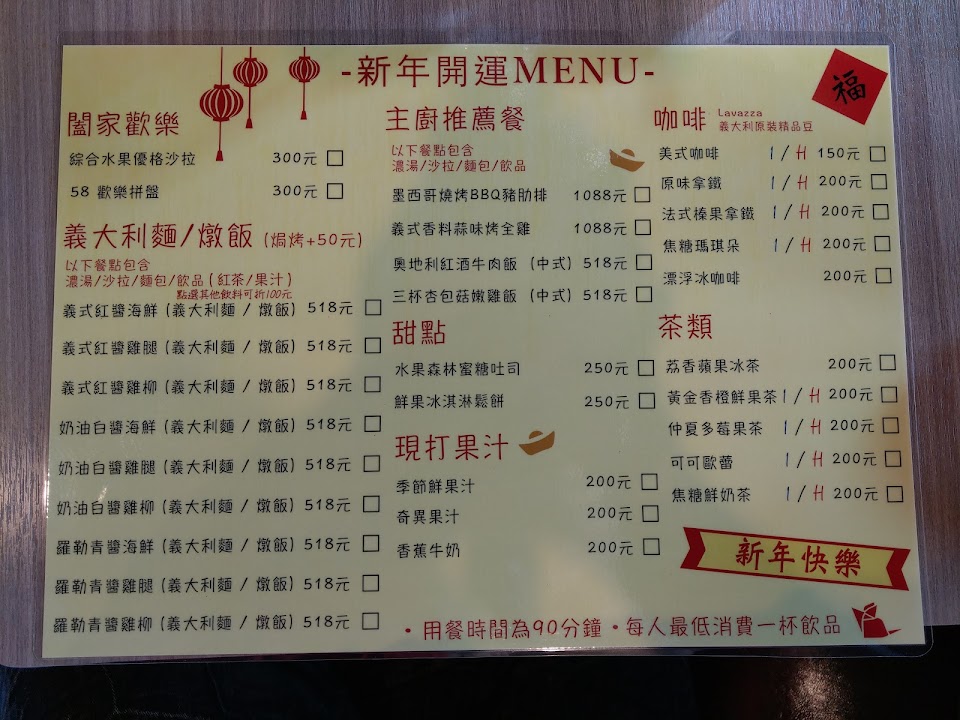 -新年開運MENU-
福
闔家歡樂
綜合水果優格沙拉 300元 □
58 歡樂拼盤 300元 □
義大利麵/燉飯 (焗烤+50元)
以下餐點包含
濃湯/沙拉/麵包/飲品(紅茶/果汁)
點選其他飲料可折100元
義式紅醬海鮮 (義大利麵 / 燉飯) 518元 □
義式紅醬雞腿 (義大利麵 / 燉飯) 518元 □
義式紅醬雞柳 (義大利麵 / 燉飯) 518元 □
奶油白醬海鮮 (義大利麵 / 燉飯) 518元 □
奶油白醬雞腿 (義大利麵 / 燉飯) 518元 □
奶油白醬雞柳 (義大利麵 / 燉飯) 518元 □
羅勒青醬海鮮 (義大利麵 / 燉飯) 518元 □
羅勒青醬雞腿 (義大利麵 / 燉飯) 518元 □
羅勒青醬雞柳 (義大利麵 / 燉飯) 518元 □
主廚推薦餐
以下餐點包含
濃湯/沙拉/麵包/飲品
墨西哥燒烤BBQ豬肋排 1088元 □
義式香料蒜味烤全雞 1088元 □
奧地利紅酒牛肉飯 (中式) 518元 □
三杯杏包菇嫩雞飯 (中式) 518元 □
甜點
水果森林蜜糖吐司 250元 □
鮮果冰淇淋鬆餅 250元 □
現打果汁
季節鮮果汁 200元 □
奇異果汁 200元 □
香蕉牛奶 200元 □
咖啡 Lavazza
義大利原裝精品豆
美式咖啡 I / H 150元 □
原味拿鐵 I / H 200元 □
法式榛果拿鐵 I / H 200元 □
焦糖瑪琪朵 I / H 200元 □
漂浮冰咖啡 200元 □
茶類
荔香蘋果冰茶 200元 □
黃金香橙鮮果茶 I / H 200元 □
仲夏多莓果茶 I / H 200元 □
可可歐蕾 I / H 200元 □
焦糖鮮奶茶 I / H 200元 □
新年快樂
・用餐時間為90分鐘・每人最低消費一杯飲品